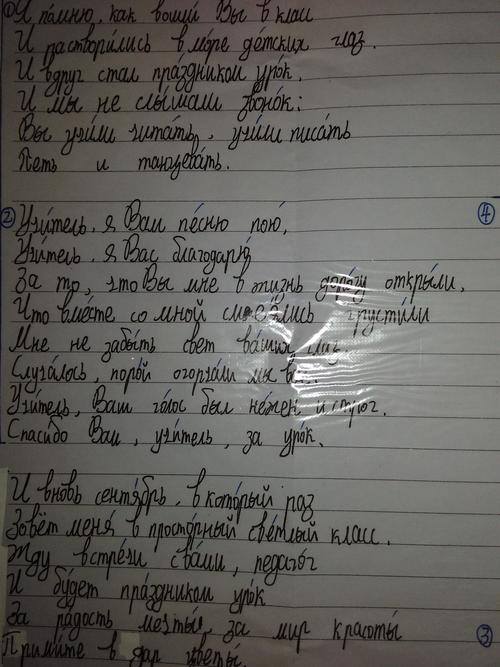 ① Я по́мню, как вошли́ Вы в класс
И раствори́лись в мо́ре де́тских глаз.
И вдруг стал пра́здником уро́к.
И мы не слы́шали звоно́к:
Вы учи́ли чита́ть, учи́ли писа́ть
Петь и танцева́ть.
② Учи́тель, я Вам пе́сню пою́, ④
Учи́тель, я Вас благодарю́
За то, что Вы мне в жизнь доро́гу откры́ли,
Что вме́сте со мной смея́лись грусти́ли
Мне не забы́ть свет ва́ших глаз.
Случа́лось, поро́й огорча́ли мы вас.
Учи́тель, Ваш го́лос был не́жен и строг.
Спаси́бо Вам, учи́тель, за уро́к.
И вновь сентя́брь, в кото́рый раз
Зовёт меня́ в просто́рный све́тлый класс.
Жду встре́чи с ва́ми, педаго́г
И бу́дет пра́здником уро́к
За ра́дость мечты́, за мир красоты́ ③
Прими́те в дар цветы́.